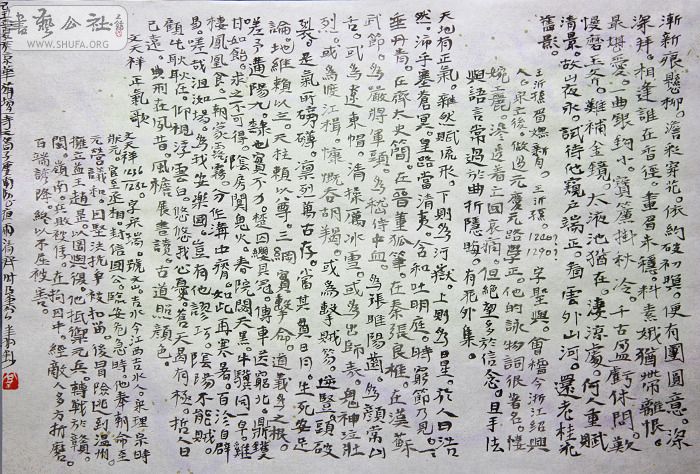 漸新痕懸柳。澹彩穿花。依約破初暝。便有團圓意。深
深拜。相逢誰在香徑。畫眉未穩。料素娥猶帶離恨。
最堪愛。一曲銀鉤小。寶簾掛秋冷。千古盈虧休問。歎
慢磨玉斧。難補金鏡。太液池猶在。淒涼處。何人重賦
清景。故山夜永。試待他窺戶端正。看雲外山河。還老桂花
舊影。
王沂孫眉嫵新月。王沂孫。1240?1290? 字聖與。會稽今浙江紹興
人。宋亡後。做過元慶元路學正。他的詠物詞很著名。悽
婉工麗。滲透着亡國哀恫。但絕望多於信念。且手法
與語言常過於曲折隱晦。有花外集。
天地有正氣。雜然賦流形。下則為河嶽。上則為日星。於人曰浩
然。沛乎塞蒼冥。皇路當清夷。含和吐明庭。時窮節乃見。一一
垂丹青。在齊太史簡。在晉董狐筆。在秦張良椎。在漢蘇
武節。為嚴將軍頭。為嵇侍中血。為張睢陽齒。為顏常山
舌。或為遼東帽。清操厲冰雪。或為出師表。鬼神泣壯
烈。或為渡江楫。慷慨吞胡羯。或為擊賊笏。逆豎頭破
裂。是氣所磅礴。凜烈萬古存。當其貫日月。生死安足
論。地維賴以立。天柱賴以尊。三綱實繫命。道義為之根。
嗟予遘陽九。隸也實不力。楚囚纓其冠。傳車送窮北。鼎鑊
甘如飴。求之不可得。陰房闃鬼火。春院閟天黑。牛驥同一皂。雞
棲鳳凰食。一朝蒙霧露。分作溝中瘠。如此再寒暑。百沴自辟
易。嗟哉沮洳場。為我安樂國。豈有他謬巧。陰陽不能賊。
顧此耿耿在。仰視浮雲白。悠悠我心憂。蒼天曷有極。哲人日
已遠。典刑在夙昔。風檐展書讀。古道照顏色。
文天祥正氣歌
文天祥1236-1283。字宋瑞。號文山。吉水今江西吉水人。宋理宗時
狀元。官至丞相。封信國公。臨安危急時他奉朝命至
元營議和。因堅決抗爭被扣留。後冒險逃到溫州。
擁立益王趙昰以圖興復。他抵禦元兵。轉戰於贛。
閩。嶺南。兵敗被俘。在拘囚中。經敵人多方折磨。
百端誘降。終以不屈被害。
书法公社
WWW.SHUFA.ORG